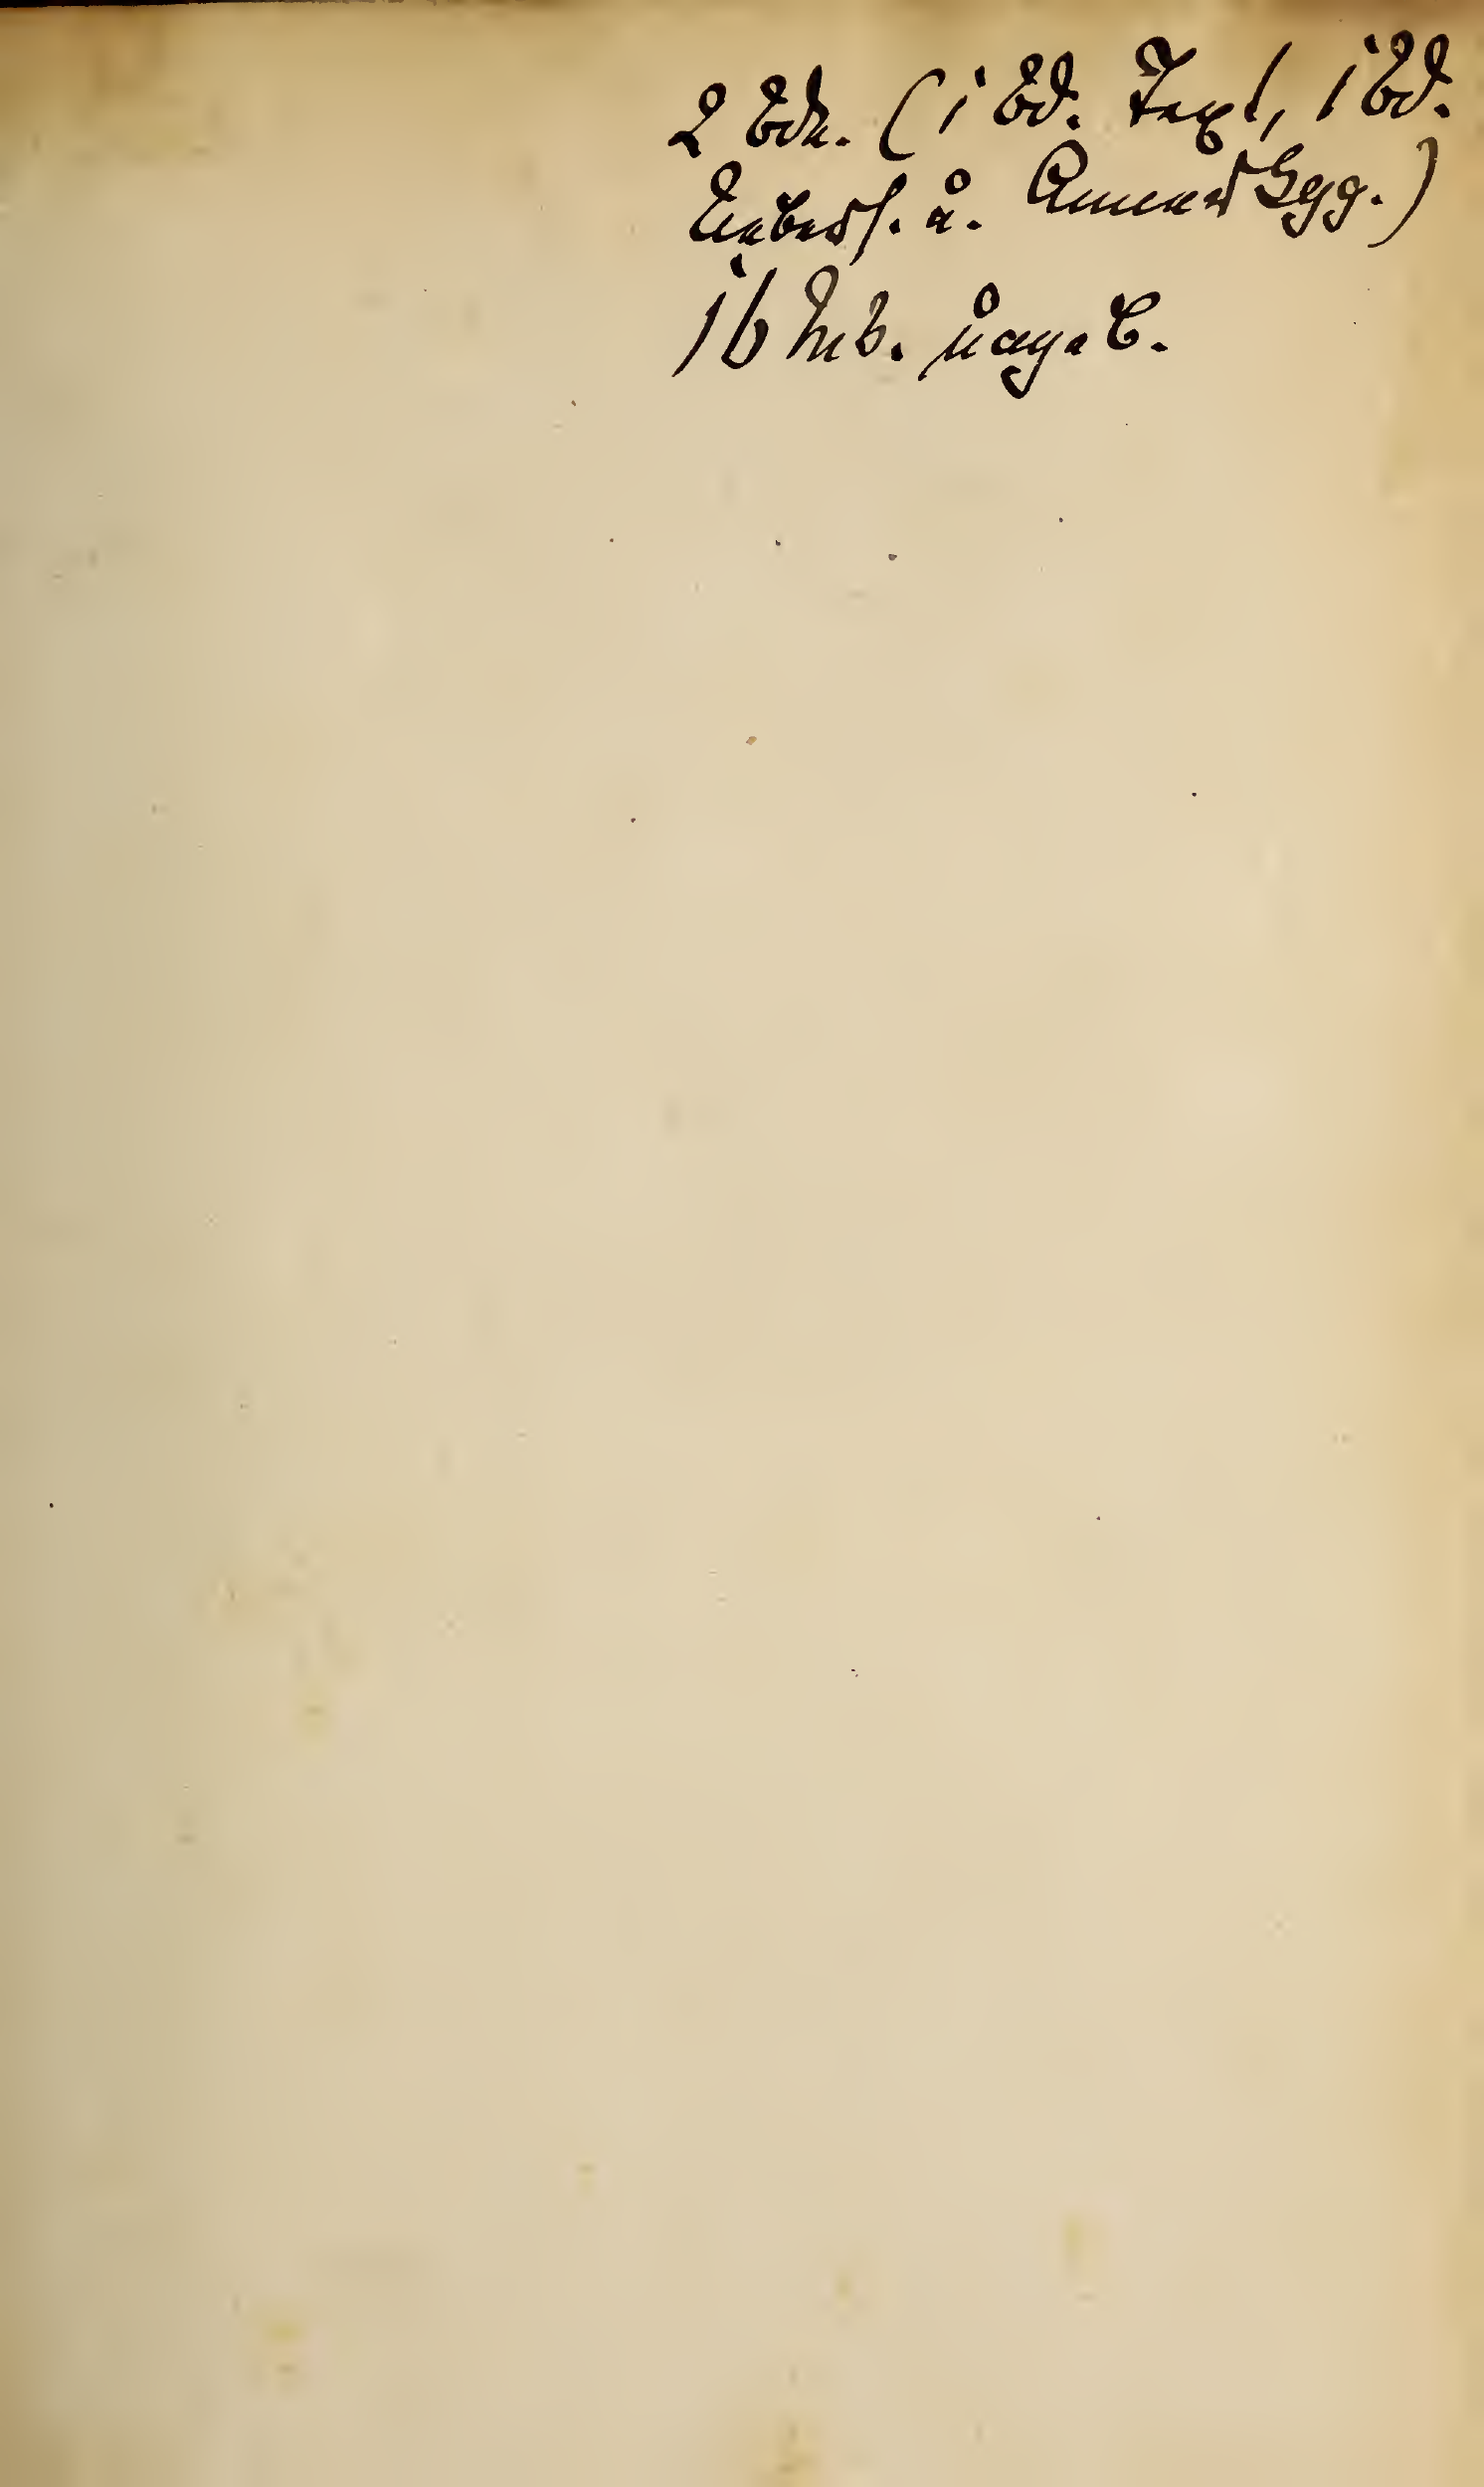 2 Bde. (1 Bd. Text, 1 Bd.
Uebers. u. Anmerkgg.)
16 Mb. ungeb.